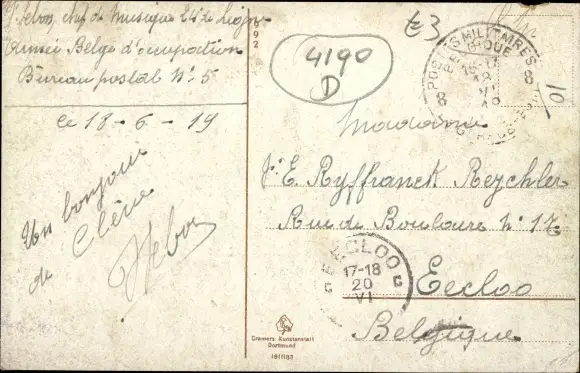 chef de musique 24e Ligne
Armée Belge d'occupation
Bureau postal N° 5
Le 18-6-19
Un bonjour
de Clève
892
4190
D
£3
10
POSTES MILITAIRES
BELGIQUE
8 8
18
VI
Madame
E. Ryffranck Reychler
Rue de Boulaere N° 17
EECLOO
17-18
20
VI
Eecloo
Belgique
Cramers Kunstanstalt
Dortmund